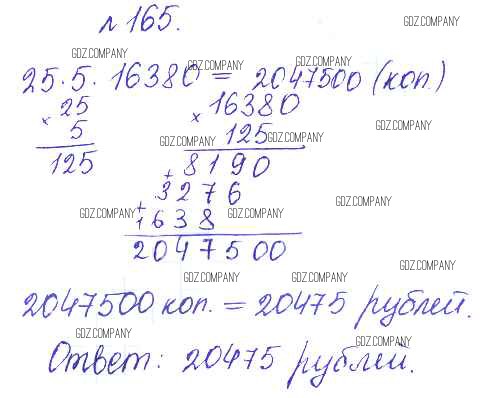 №165.
GDZ.COMPANY
GDZ.COMPANY GDZ.COMPANY
25·5·16380 = 2047500 (коп.)
× 25 × 16380
5 125
GDZ.COMPANY GDZ.COMPANY GDZ.COMPANY
125 8190
+ 3276
GDZ.COMPANY
+ 1638
GDZ.COMPANY GDZ.COMPANY
2047500
GDZ.COMPANY
GDZ.COMPANY GDZ.COMPANY
2047500 коп. = 20475 рублей.
GDZ.COMPANY GDZ.COMPANY
Ответ: 20475 рублей.